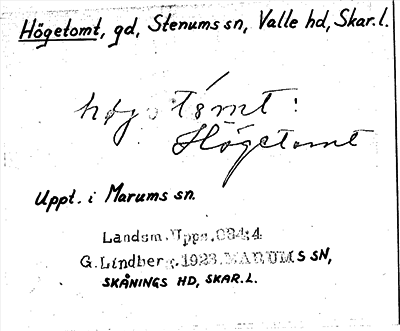 Högetomt, gd, Stenums sn, Valle hd, Skar. l.
tómt:
Högetomt
Uppt. i Marums sn.
Landsm. Upps. 034:4
G. Lindberg. 1923. MARUMS SN,
SKÅNINGS HD, SKAR. L.